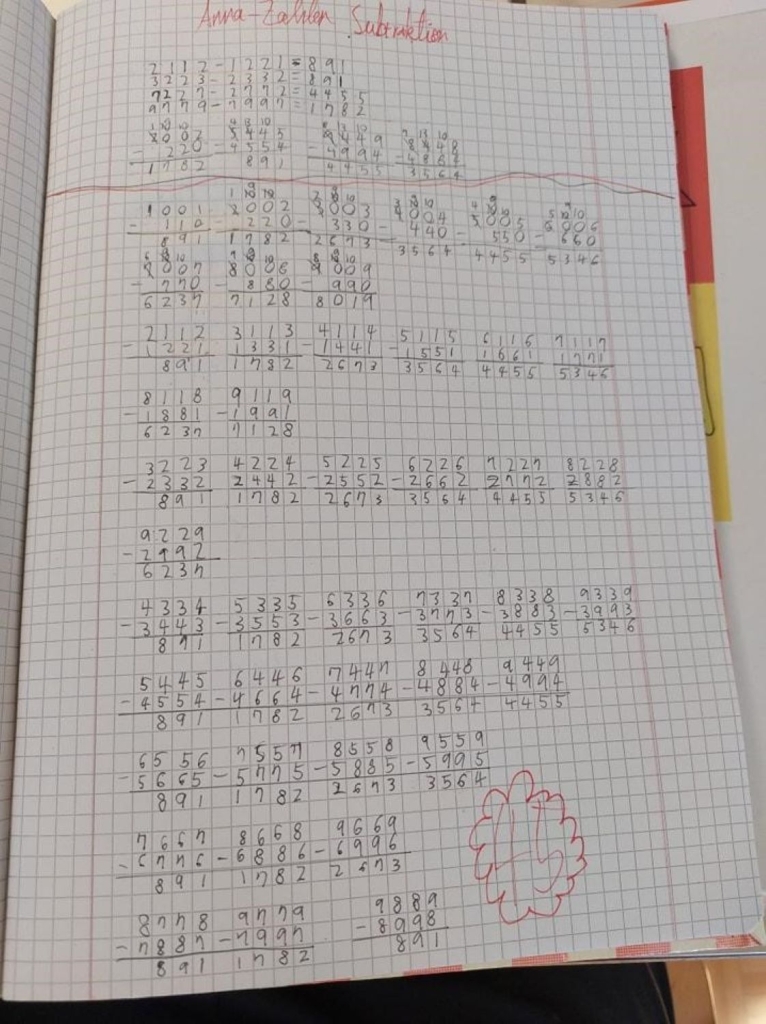 Anna-Zahlen Subtraktion
2112 - 1221 = 891
3223 - 2332 = 891
7227 - 2772 = 4455
9779 - 7997 = 1782
2002 5445 9449 8448
- 220 - 4554 - 4994 - 4884
1782 891 4455 3564
1001 2002 3003 4004 5005 6006
- 110 - 220 - 330 - 440 - 550 - 660
891 1782 2673 3564 4455 5346
7007 8008 9009
- 770 - 880 - 990
6237 7128 8019
2112 3113 4114 5115 6116 7117
- 1221 1331 - 1441 - 1551 1661 1771
891 1782 2673 3564 4455 5346
8118 9119
- 1881 - 1991
6237 7128
3223 4224 5225 6226 7227 8228
- 2332 2442 - 2552 - 2662 2772 2882
891 1782 2673 3564 4455 5346
9229
- 2992
6237
4334 5335 6336 7337 8338 9339
- 3443 - 3553 - 3663 - 3773 - 3883 - 3993
891 1782 2673 3564 4455 5346
5445 6446 7447 8448 9449
- 4554 - 4664 - 4774 - 4884 - 4994
891 1782 2673 3564 4455
6556 7557 8558 9559
- 5665 - 5775 - 5885 - 5995
891 1782 2673 3564
7667 8668 9669
- 6776 - 6886 - 6996
891 1782 2673
8778 9779 9889
- 7887 - 7997 - 8998
891 1782 891